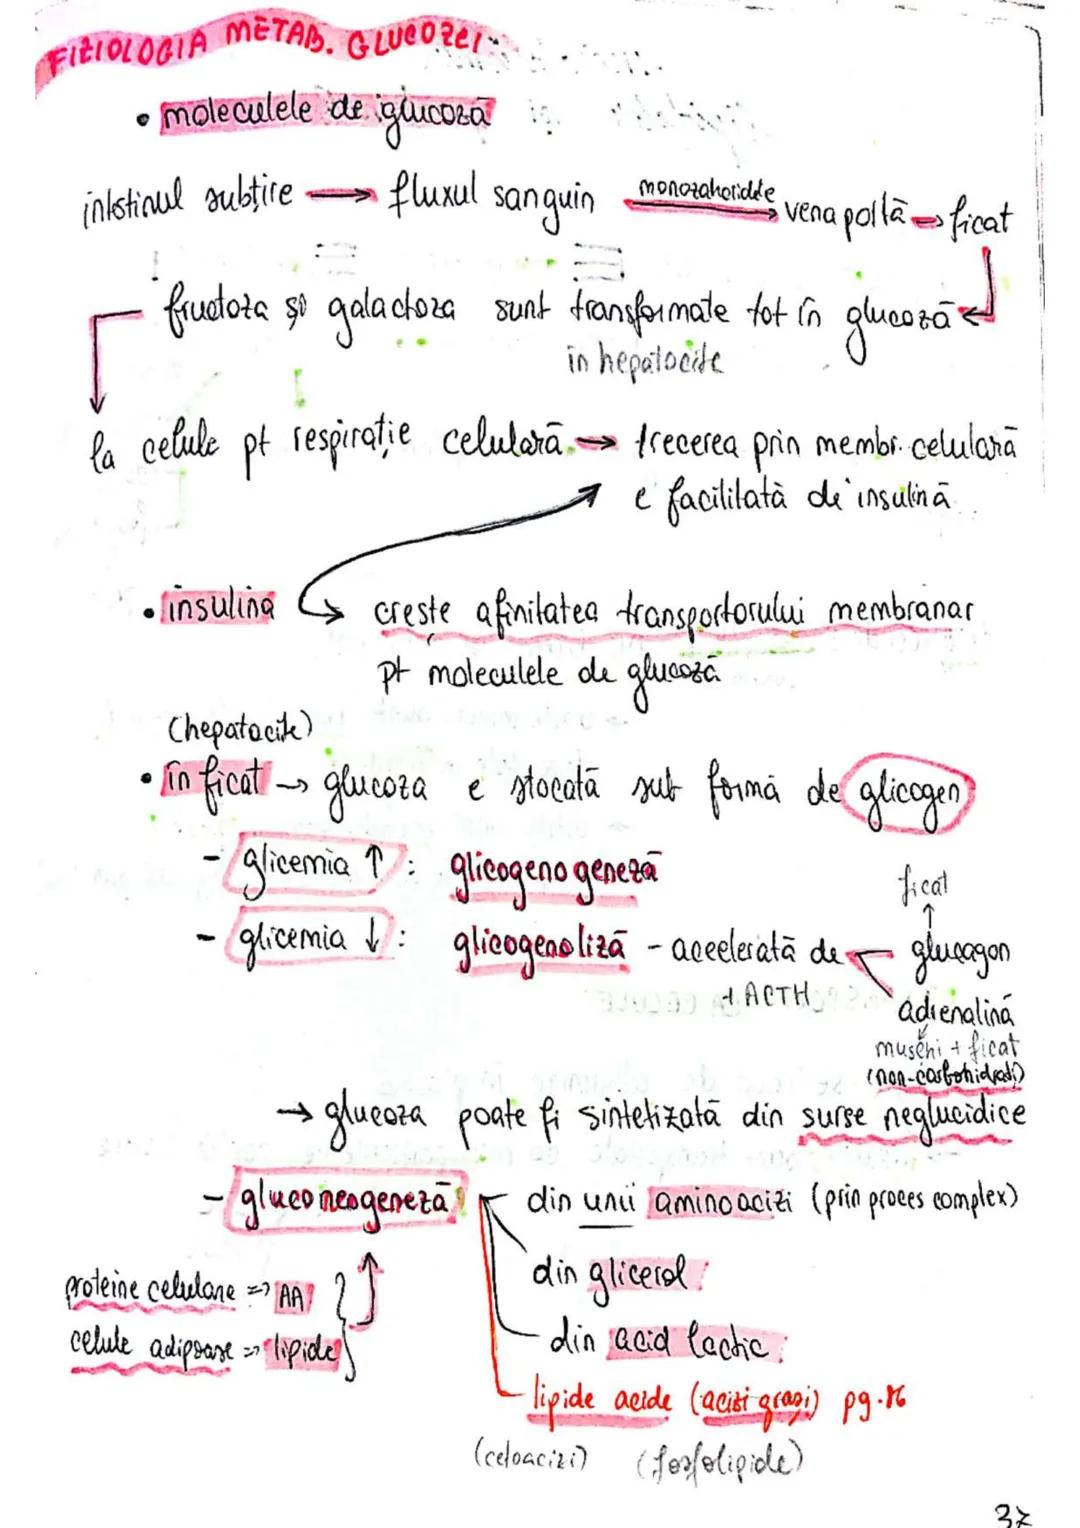 FIZIOLOGIA METAB. GLUCOZEI
• moleculele de glucoză
intestinul subțire → fluxul sanguin monozaharidele → vena portă → ficat
fructoza și galactoza sunt transformate tot în glucoză
în hepatocite
la celule pt respirație celulară → trecerea prin membr. celulară
e facilitată de insulină
• insulina → crește afinitatea transportorului membranar
pt moleculele de glucoză
(hepatocite)
• în ficat → glucoza e stocată sub formă de glicogen
- glicemia ↑ : glicogenogeneză
ficat
↑
- glicemia ↓ : glicogenoliză - accelerată de glucagon
+ ACTH
adrenalină
mușchi + ficat
(non-carbohidrați)
→ glucoza poate fi sintetizată din surse neglucidice
- gluconeogeneză din unii aminoacizi (prin proces complex)
din glicerol
proteine celulare => AA
din acid lactic
celule adipoase => lipide
lipide acide (acizi grași) pg. 16
(cetoacizi) (fosfolipide)
37